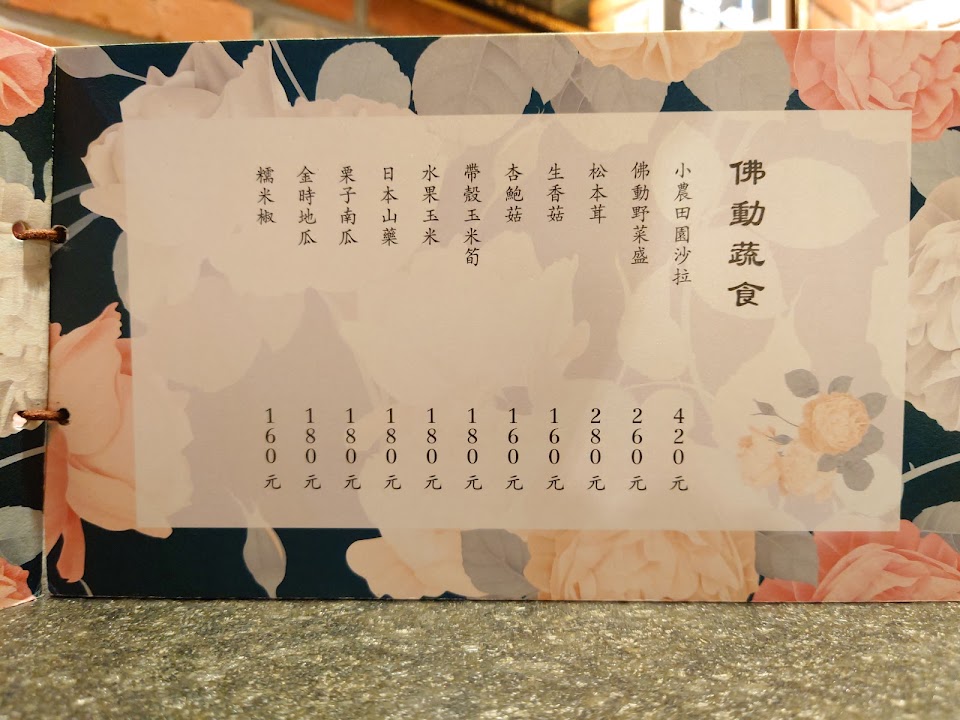 佛動蔬食
小農田園沙拉 420元
佛動野菜盛 260元
松本茸 280元
生香菇 160元
杏鮑菇 160元
帶殼玉米筍 180元
水果玉米 180元
日本山藥 180元
栗子南瓜 180元
金時地瓜 180元
糯米椒 160元